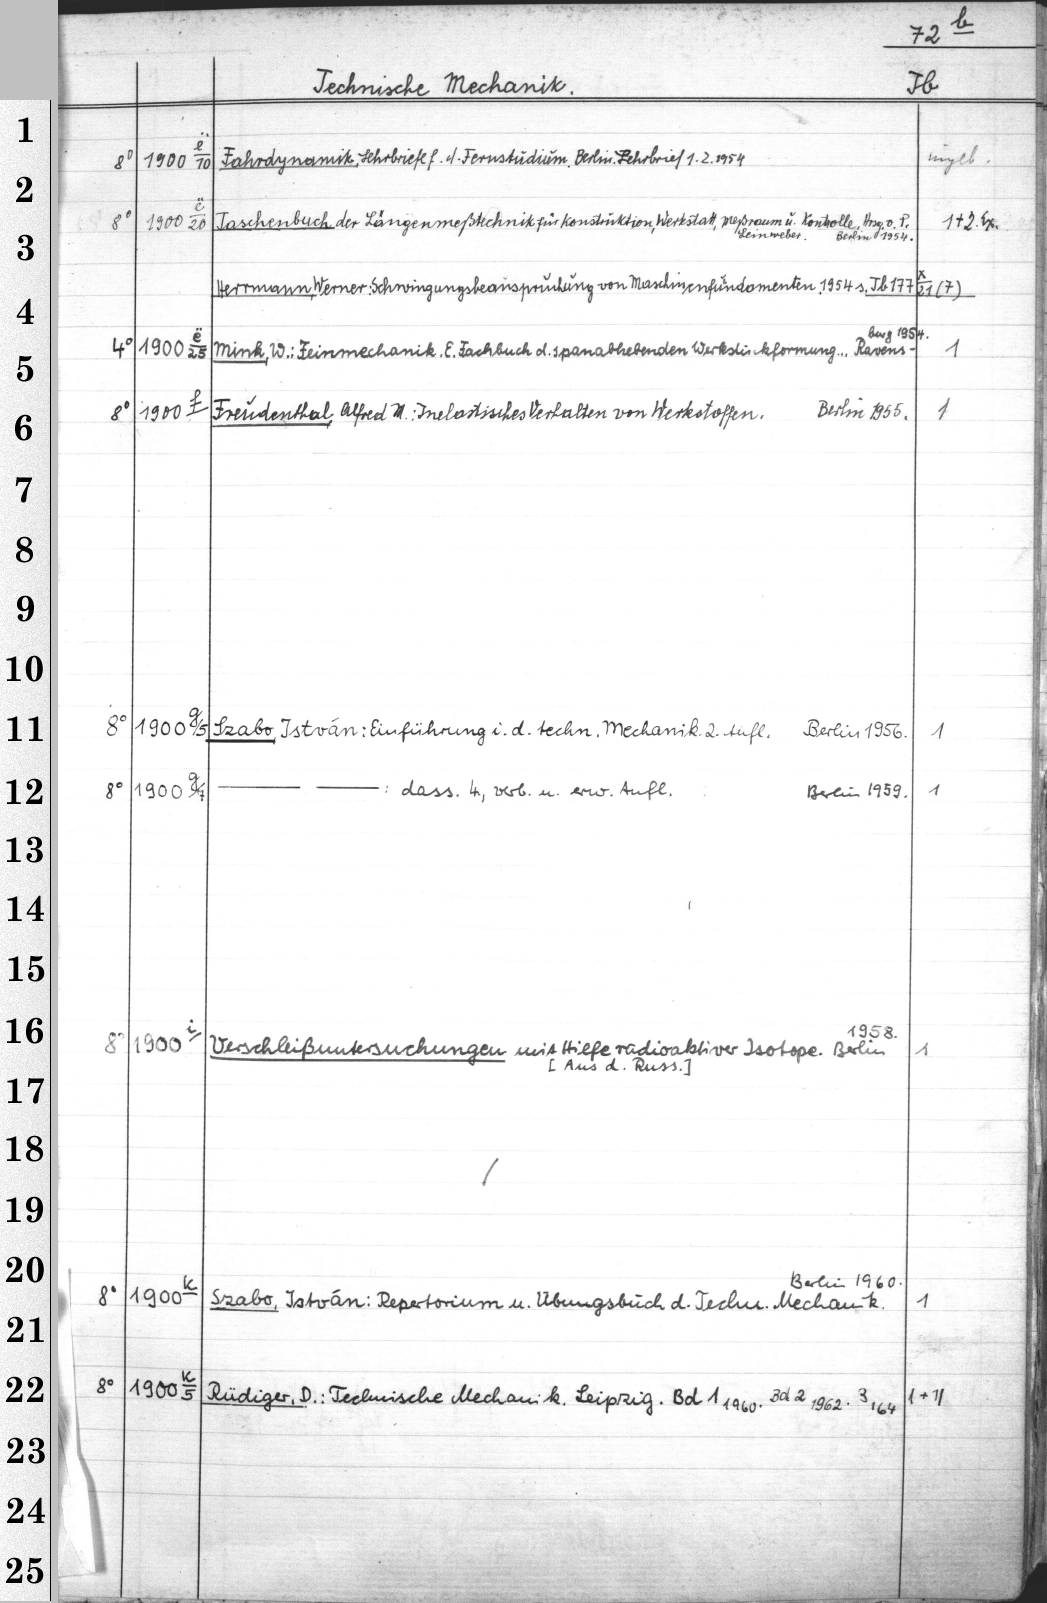 72 b
Technische Mechanik. Tb
1
8° 1900 ë/10 Fahrdynamik, Lehrbriefe f. d. Fernstudium. Berlin. Lehrbrief 1.2.1954
2
8° 1900 ë/20 Taschenbuch der Längenmeßtechnik für Konstruktion, Werkstatt, Meßraum u. Kontrolle, Hrsg. v. P. 1+2. Ex.
Leinweber. Berlin 1954.
3
Herrmann, Werner: Schwingungsbeanspruchung von Maschinenfundamenten. 1954 s. Tb 177 x/21 (7)
4
burg 1954.
4° 1900 ë/25 Mink, W.: Feinmechanik. E. Fachbuch d. spanabhebenden Werkstückformung... Ravens- 1
5
8° 1900 f Freudenthal, Alfred M.: Inelastisches Verhalten von Werkstoffen. Berlin 1955. 1
6
7
8
9
10
11 8° 1900 g/5 Szabo, István: Einführung i. d. techn. Mechanik. 2. Aufl. Berlin 1956. 1
12 8° 1900 g/7 —— ——: dass. 4, verb. u. erw. Aufl. Berlin 1959. 1
13
14
15
16 1958.
8° 1900 i Verschleißuntersuchungen mit Hilfe radioaktiver Isotope. Berlin 1
[Aus d. Russ.]
17
18
19
20
Berlin 1960.
8° 1900 k Szabo, István: Repertorium u. Übungsbuch d. Techn. Mechanik. 1
21
22 8° 1900 k/5 Rüdiger, D.: Technische Mechanik. Leipzig. Bd 1 1960. Bd 2 1962. 3 '64 1+1
23
24
25